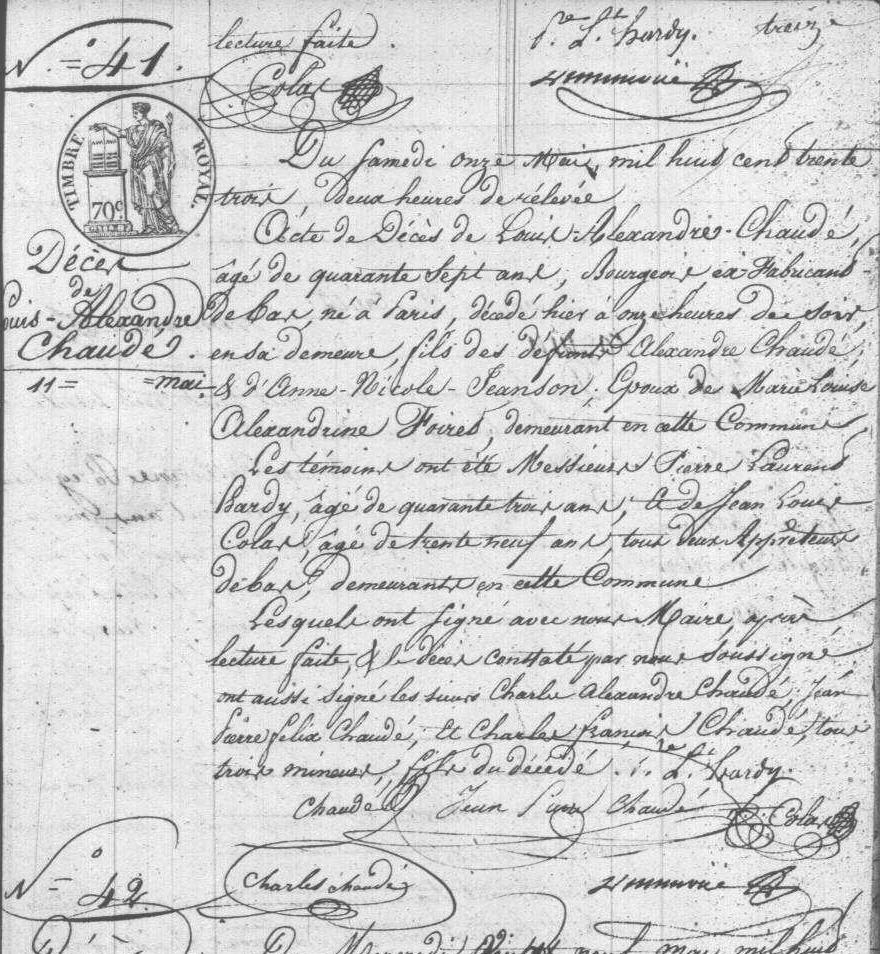 N.º = 41.
lecture faite.
Pre Lt Bardy. treize
Colas
TIMBRE ROYAL.
70c
Décès
de
Louis-Alexandre
Chaudé.
11 = = mai.
Du Samedi onze Mai, mil huit cent trente
trois, deux heures de rélévée
Acte de Décès de Louis-Aléxandre-Chaudé,
âgé de quarante Sept ans, Bourgeois, ex Fabricant
de bas, né à Paris, décédé hier à onze heures de soir,
en sa demeure, fils des défunts Alexandre Chaudé,
& d'Anne-Nicole-Jeanson, Epoux de Marie Louise
Alexandrine Foiret, demeurant en cette Commune
Les témoins ont été Messieurs Pierre Laurent
Bardy, âgé de quarante trois ans, et de Jean Louis
Colas, âgé de trente neuf ans, tous deux Apprêteurs
de bas, demeurants en cette Commune
Lesquels ont signé avec nous Maire, après
lecture faite, & le décès constaté par nous Soussigné
ont aussi signé les sieurs Charles Alexandre Chaudé, Jean
Pierre félix Chaudé, et Charles françois Chaudé, tous
trois mineurs, fils du décédé. Pre Lt Bardy.
Chaudé Jean Pierre Chaudé Colas
charles chaudé
N.º = 42
Du Mercredi mai mil huit